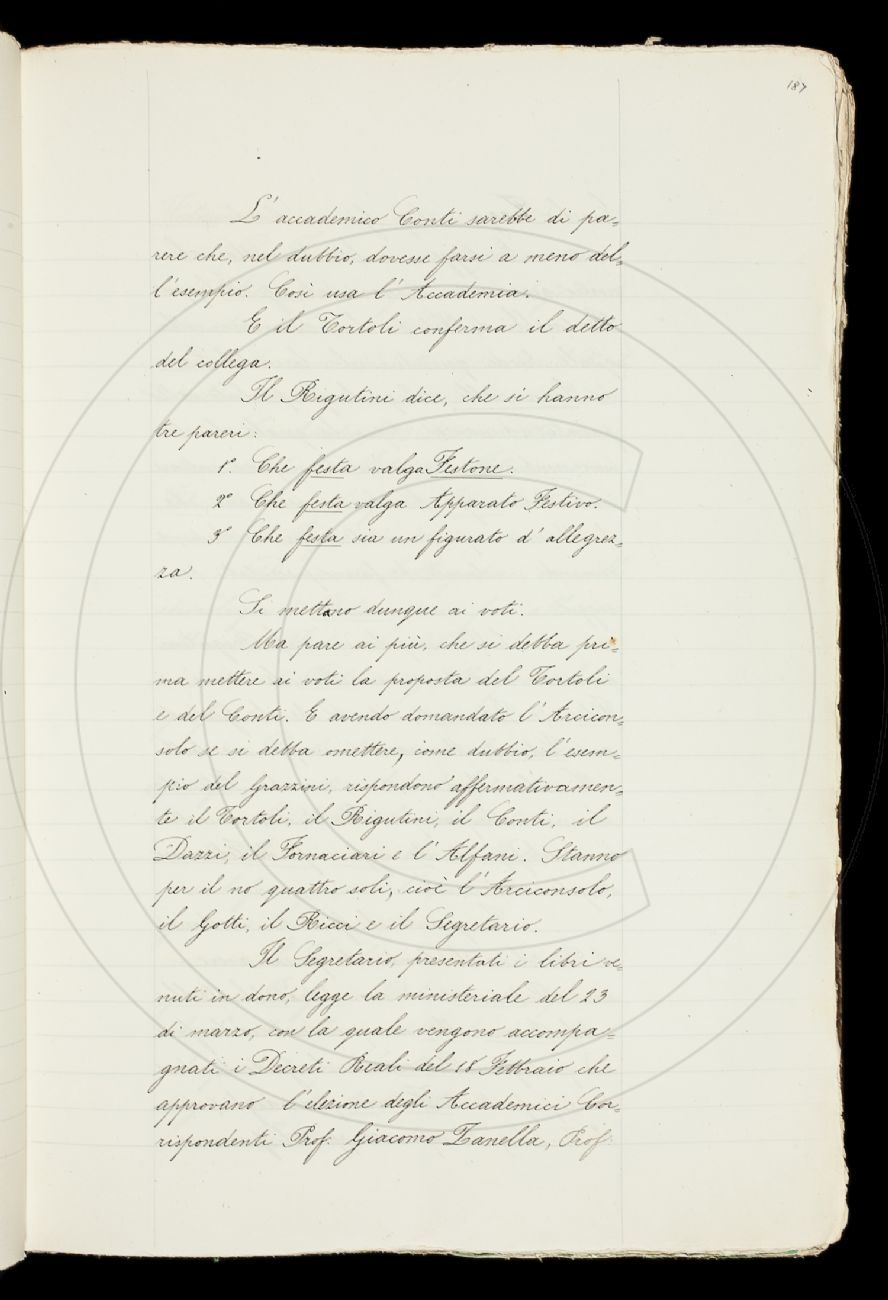 187
L' accademico Conti sarebbe di pa=
rere che, nel dubbio, dovesse farsi a meno del=
l'esempio. Così usa l' Accademia.
E il Tortoli conferma il detto
del collega.
Il Rigutini dice, che si hanno
tre pareri:
1.° Che festa valga Festone.
2° Che festa valga Apparato Festivo.
3° Che festa sia un figurato d' allegrez=
za.
Si mettano dunque ai voti.
Ma pare ai più, che si debba pri=
ma mettere ai voti la proposta del Tortoli
e del Conti. E avendo domandato l' Arcicon=
solo se si debba omettere, come dubbio, l' esem=
pio del Grazzini, rispondono affermativamen=
te il Tortoli, il Rigutini, il Conti, il
Dazzi, il Fornaciari e l' Alfani. Stanno
per il no quattro soli, cioè l' Arciconsolo,
il Gotti, il Ricci e il Segretario.
Il Segretario, presentati i libri ve=
nuti in dono, legge la ministeriale del 23
di marzo, con la quale vengono accompa=
gnati i Decreti Reali del 18 Febbraio che
approvano l' elezione degli Accademici Cor=
rispondenti Prof. Giacomo Zanella, Prof.